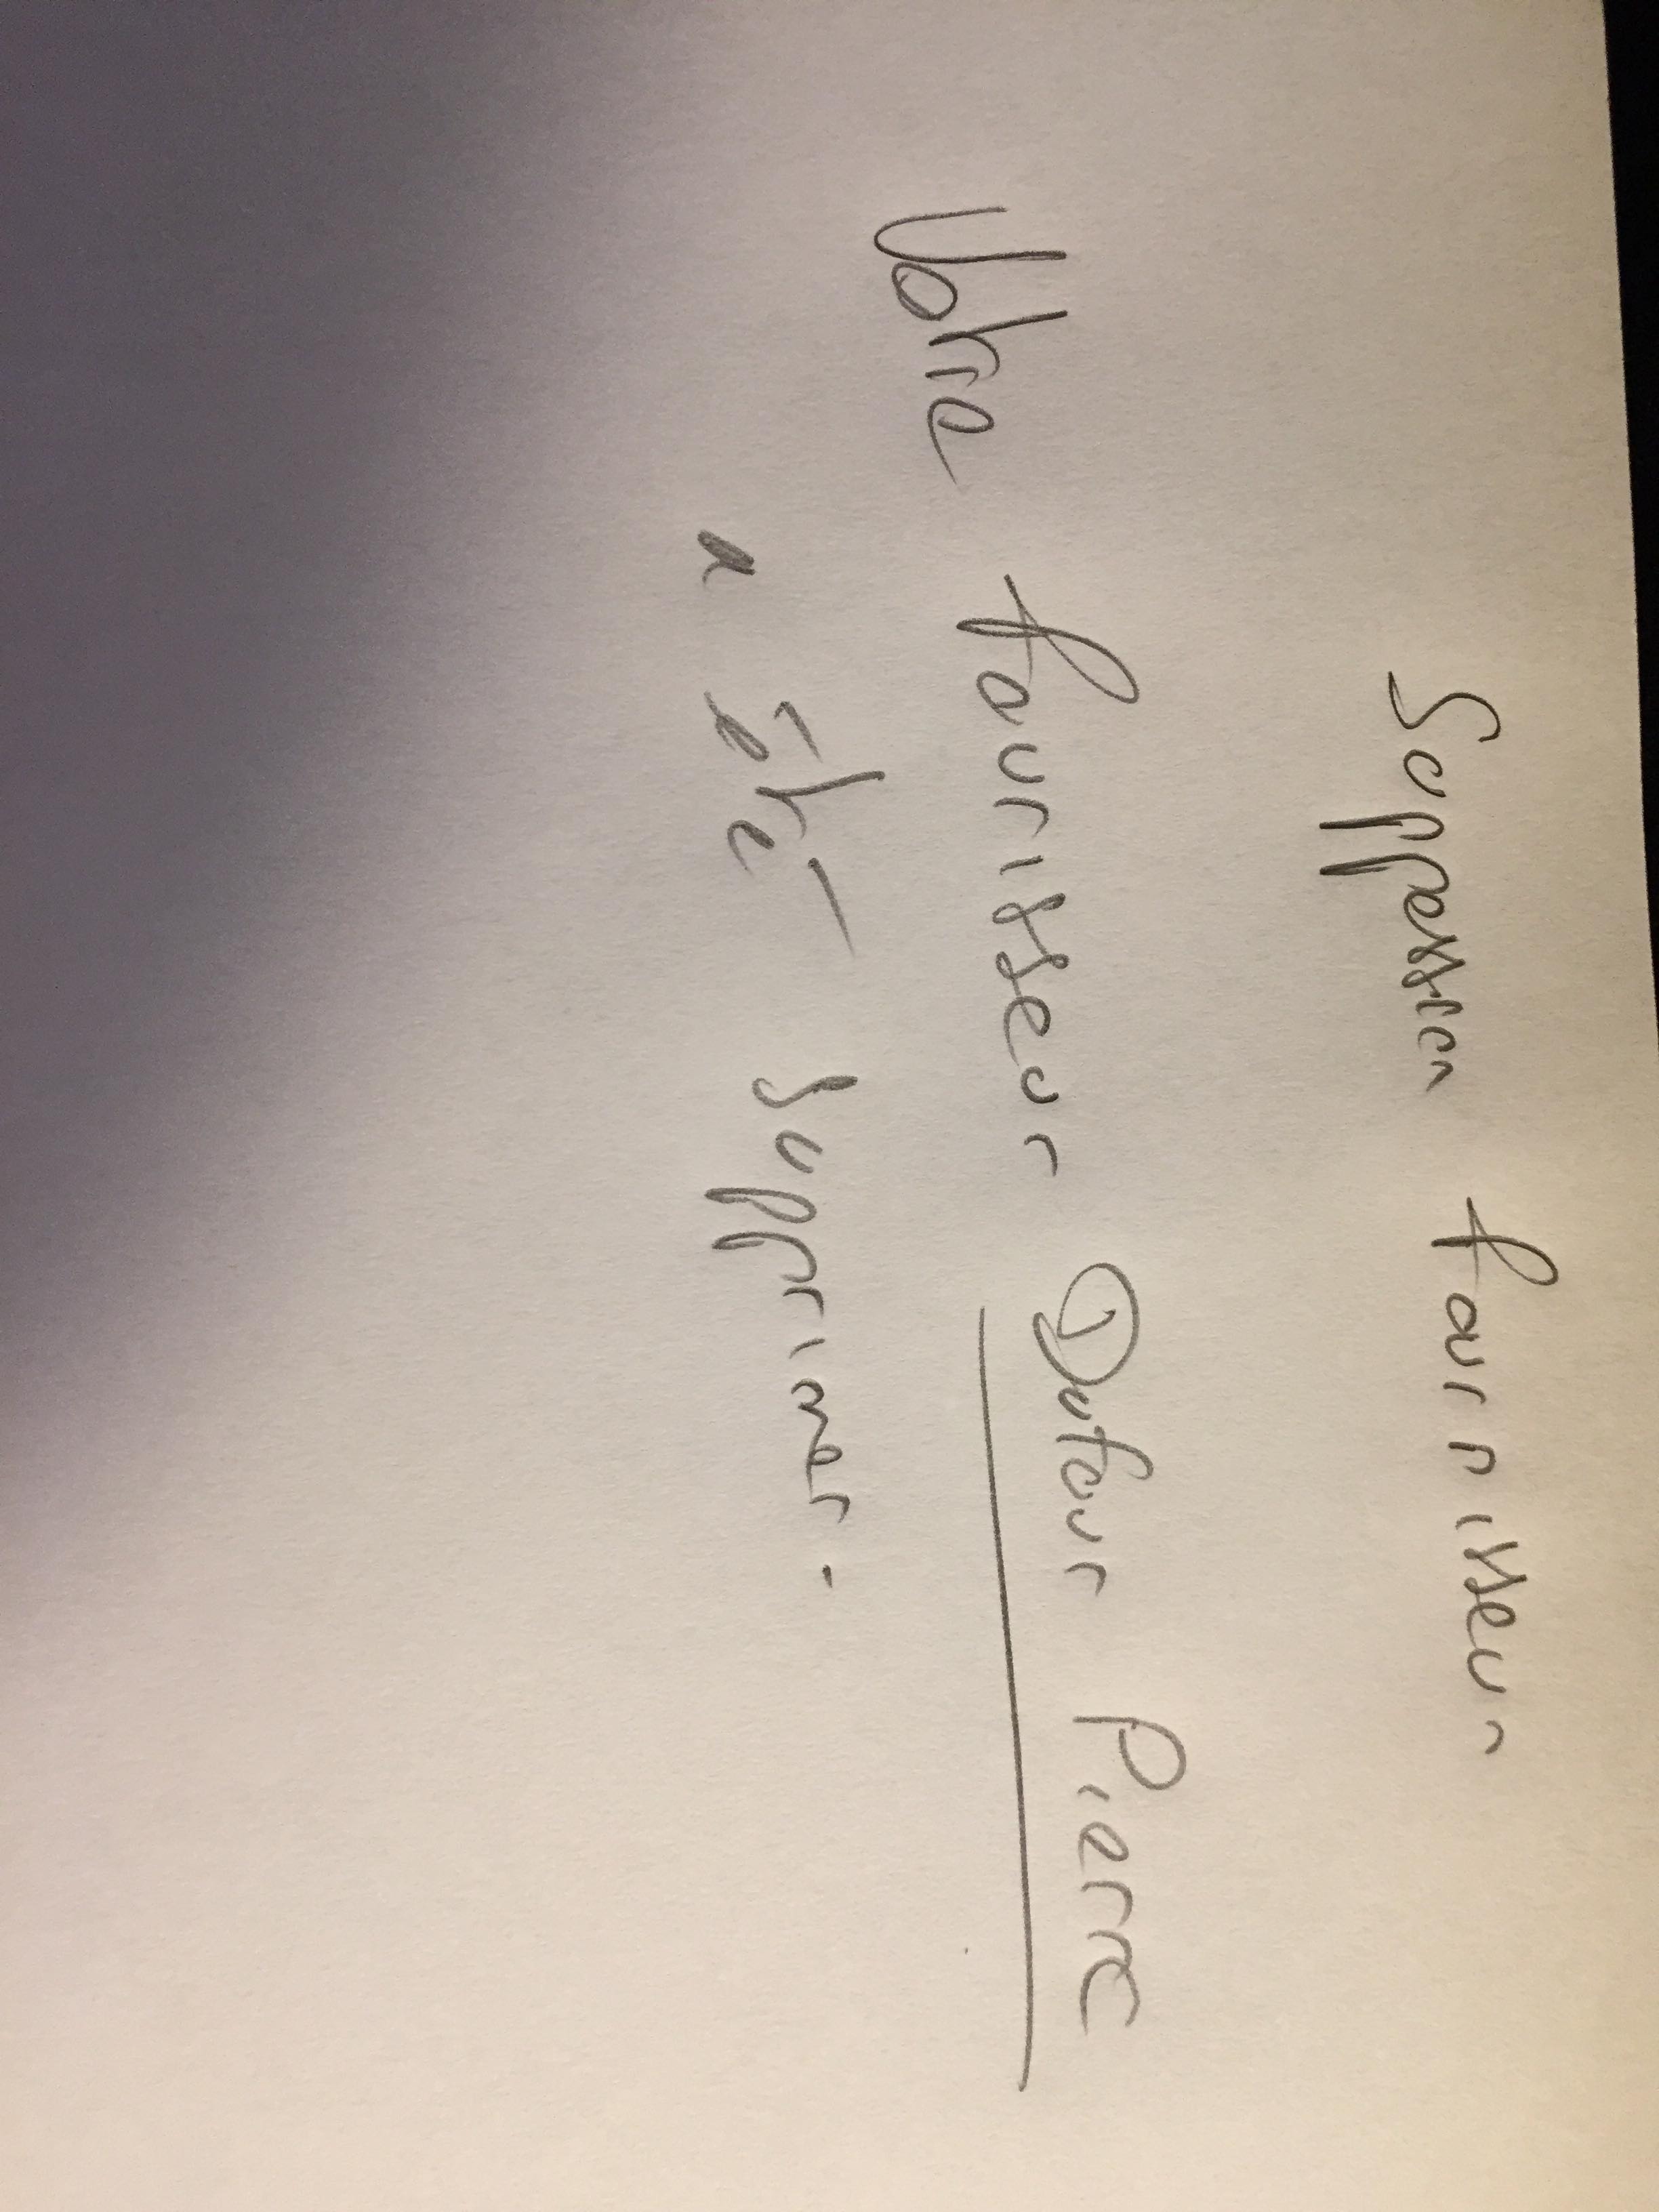 Suppession fournisseur
Votre fourisseur Dufour Pierre
a été supprimer.